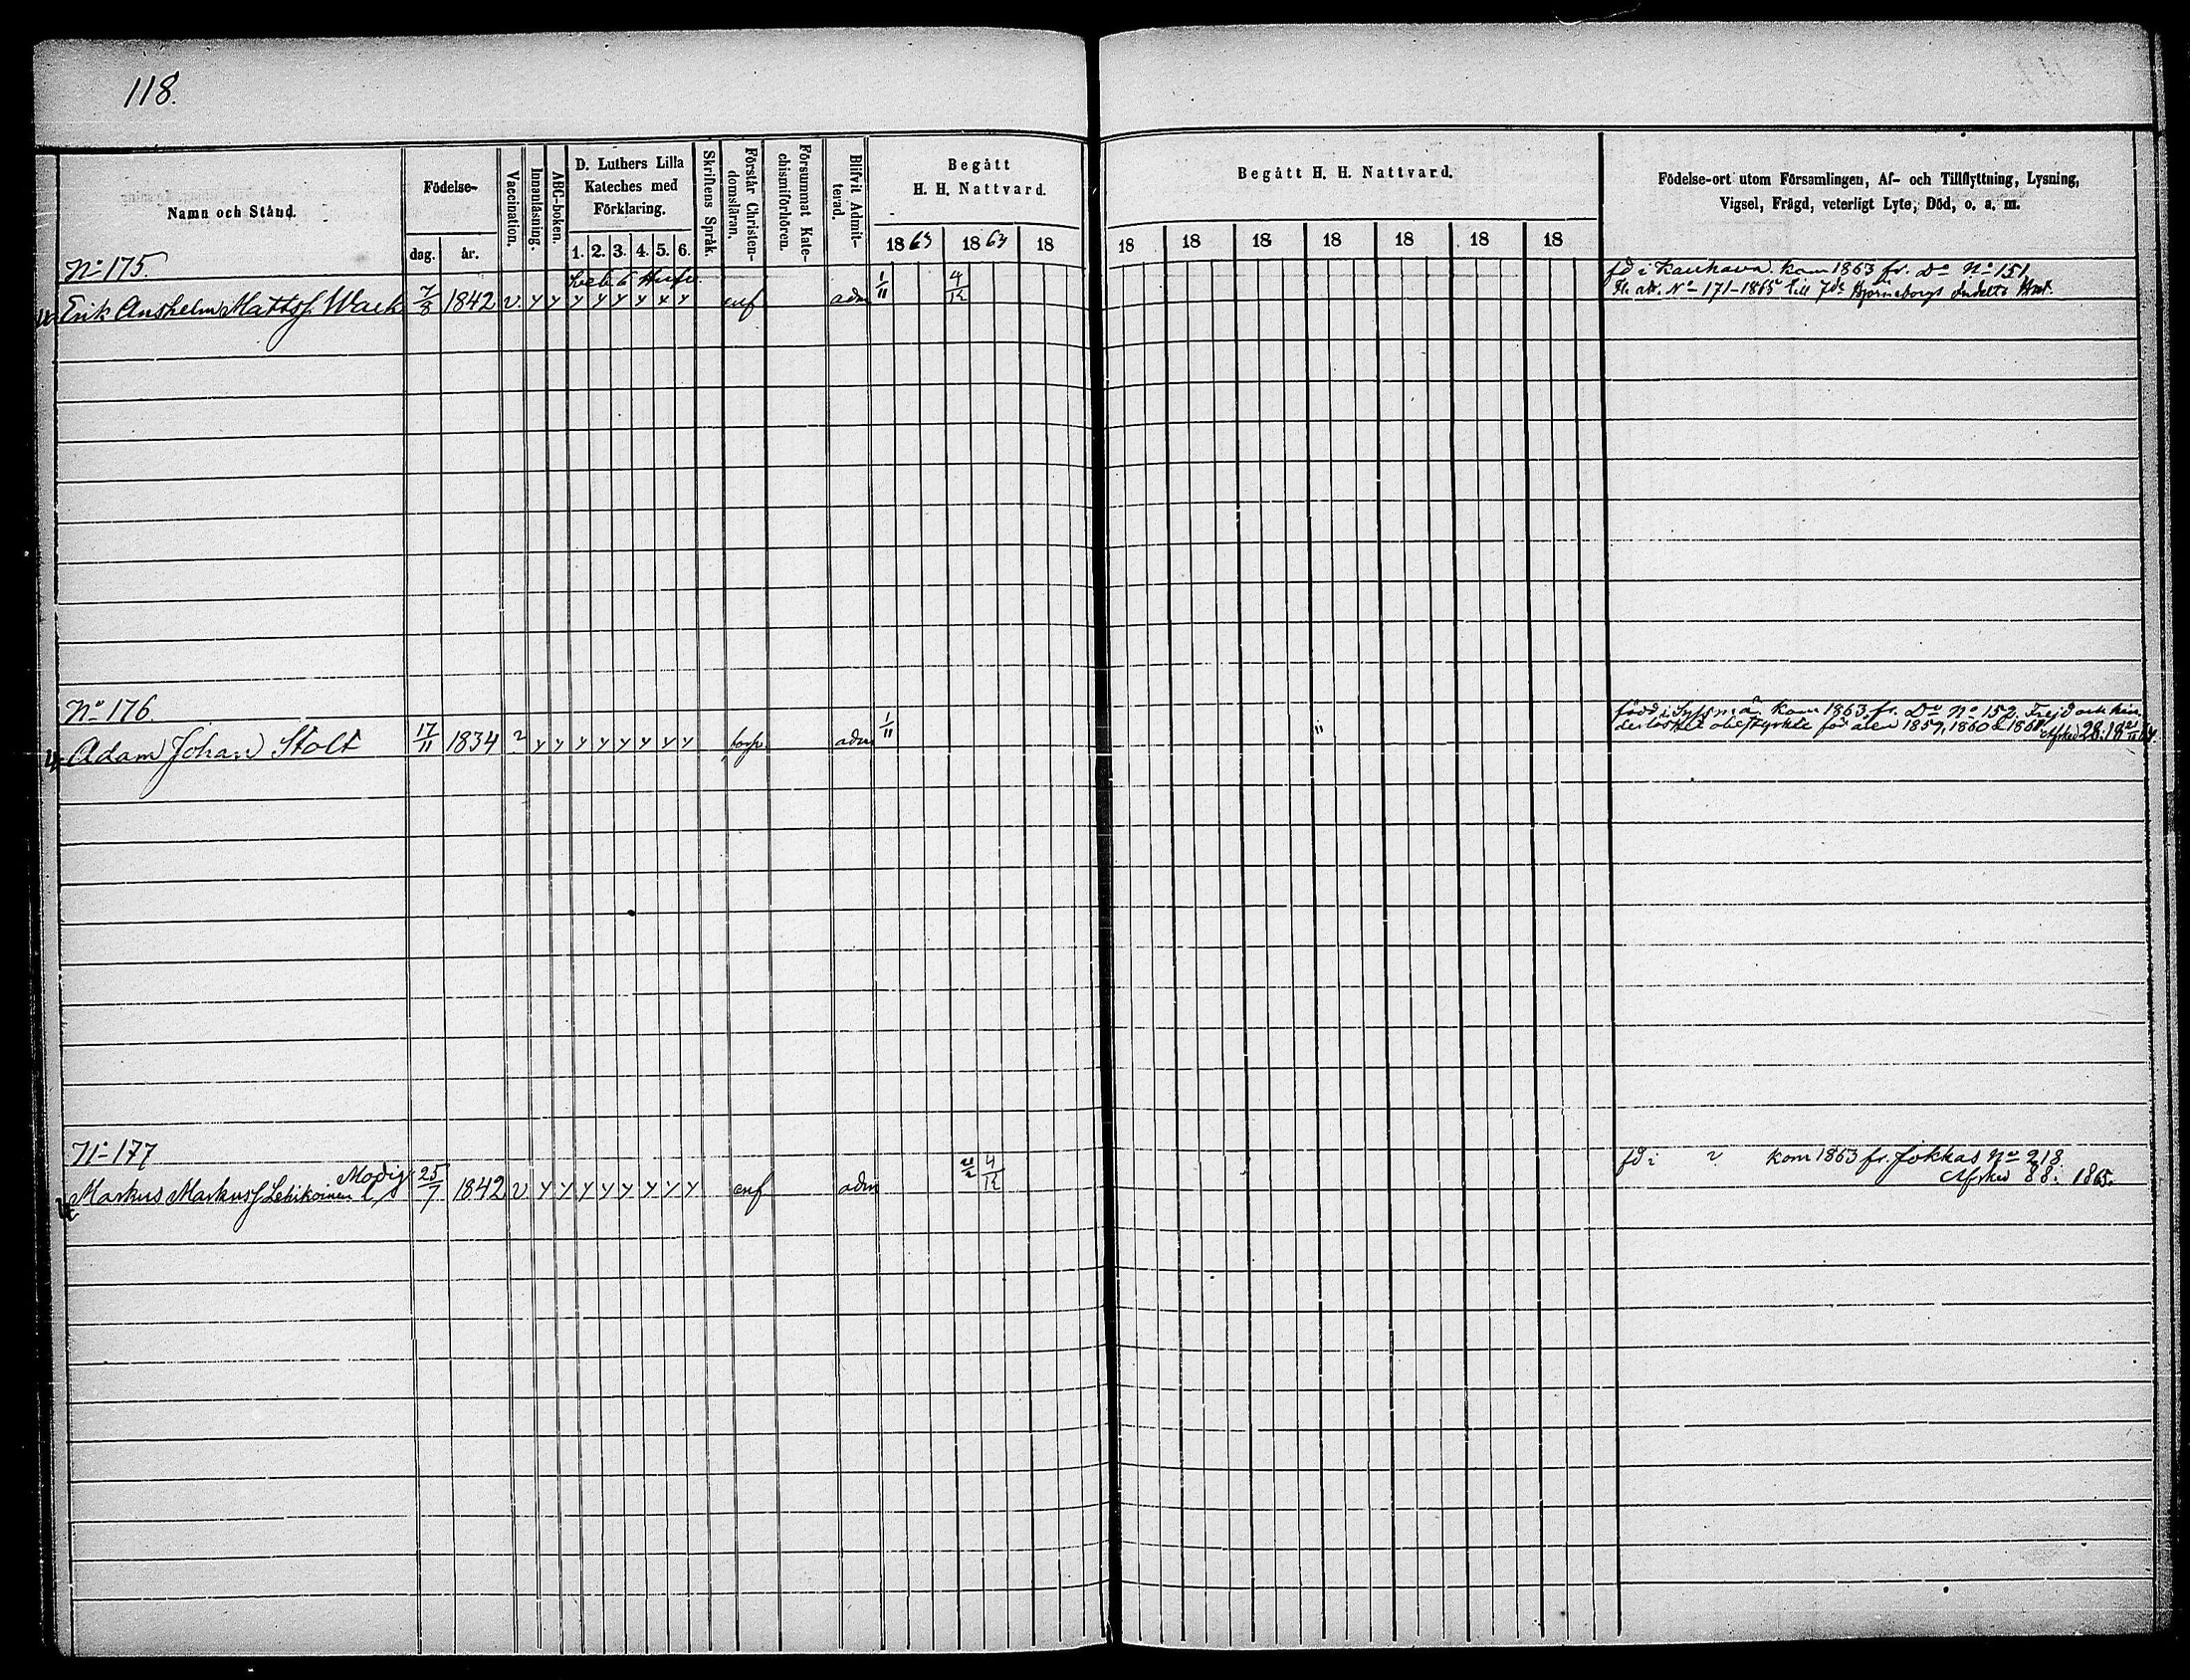 118.
Namn och Stånd.
Födelse-
dag.
år.
Vaccination.
Innanläsning.
ABC-boken.
D. Luthers Lilla
Kateches med
Förklaring.
1. 2. 3. 4. 5. 6.
Skriftens Språk.
Förstår Christen-
domsläran.
Försummat Kate-
chismiförhören.
Blifvit Admit-
terad.
Begått
H. H. Nattvard.
18 63 18 64 18
Begått H. H. Nattvard.
18 18 18 18 18 18 18
Födelse-ort utom Församlingen, Af- och Tillflyttning, Lysning,
Vigsel, Frägd, veterligt Lyte, Död, o. a. m.
No 175.
Erik Anshelm Mattsf. Wack 7/8 1842 v. y y y y y y y y adm 1/11 4/12
fd i Kauhava. kom 1863 fr. Do No 151
No 171-1865 till 7de Björneborgs indelta
No 176.
Adam Johan Stolt 17/11 1834 ? y y y y y y y y adm 1/11
född i Sysmä. kom 1863 fr. Do No 152. Frejd och
obestyrkte för åren 1859, 1860 & 1861. Afsked 28.
No 177
Modig
Markus Markusf Lehikoinen 25/7 1842 v y y y y y y y y adm 4/12
fd i ? kom 1863 fr. Jokkas No 218.
Afsked 88. 1865.